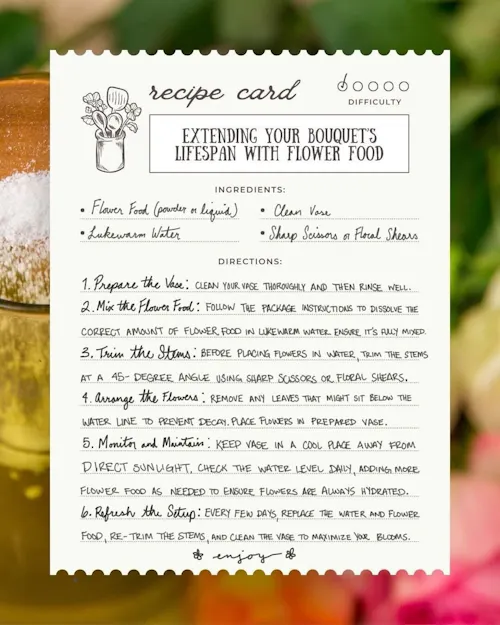 recipe card
DIFFICULTY
EXTENDING YOUR BOUQUET'S
LIFESPAN WITH FLOWER FOOD
INGREDIENTS:
• Flower Food (powder or liquid)
• Clean Vase
• Lukewarm Water
• Sharp Scissors or Floral Shears
DIRECTIONS:
1. Prepare the Vase: CLEAN YOUR VASE THOROUGHLY AND THEN RINSE WELL.
2. Mix the Flower Food: FOLLOW THE PACKAGE INSTRUCTIONS TO DISSOLVE THE
CORRECT AMOUNT OF FLOWER FOOD IN LUKEWARM WATER. ENSURE IT'S FULLY MIXED.
3. Trim the Stems: BEFORE PLACING FLOWERS IN WATER, TRIM THE STEMS
AT A 45-DEGREE ANGLE USING SHARP SCISSORS OR FLORAL SHEARS.
4. Arrange the Flowers: REMOVE ANY LEAVES THAT MIGHT SIT BELOW THE
WATER LINE TO PREVENT DECAY. PLACE FLOWERS IN PREPARED VASE.
5. Monitor and Maintain: KEEP VASE IN A COOL PLACE AWAY FROM
DIRECT SUNLIGHT, CHECK THE WATER LEVEL DAILY, ADDING MORE
FLOWER FOOD AS NEEDED TO ENSURE FLOWERS ARE ALWAYS HYDRATED.
6. Refresh the Setup: EVERY FEW DAYS, REPLACE THE WATER AND FLOWER
FOOD, RE-TRIM THE STEMS, AND CLEAN THE VASE TO MAXIMIZE YOUR BLOOMS.
enjoy